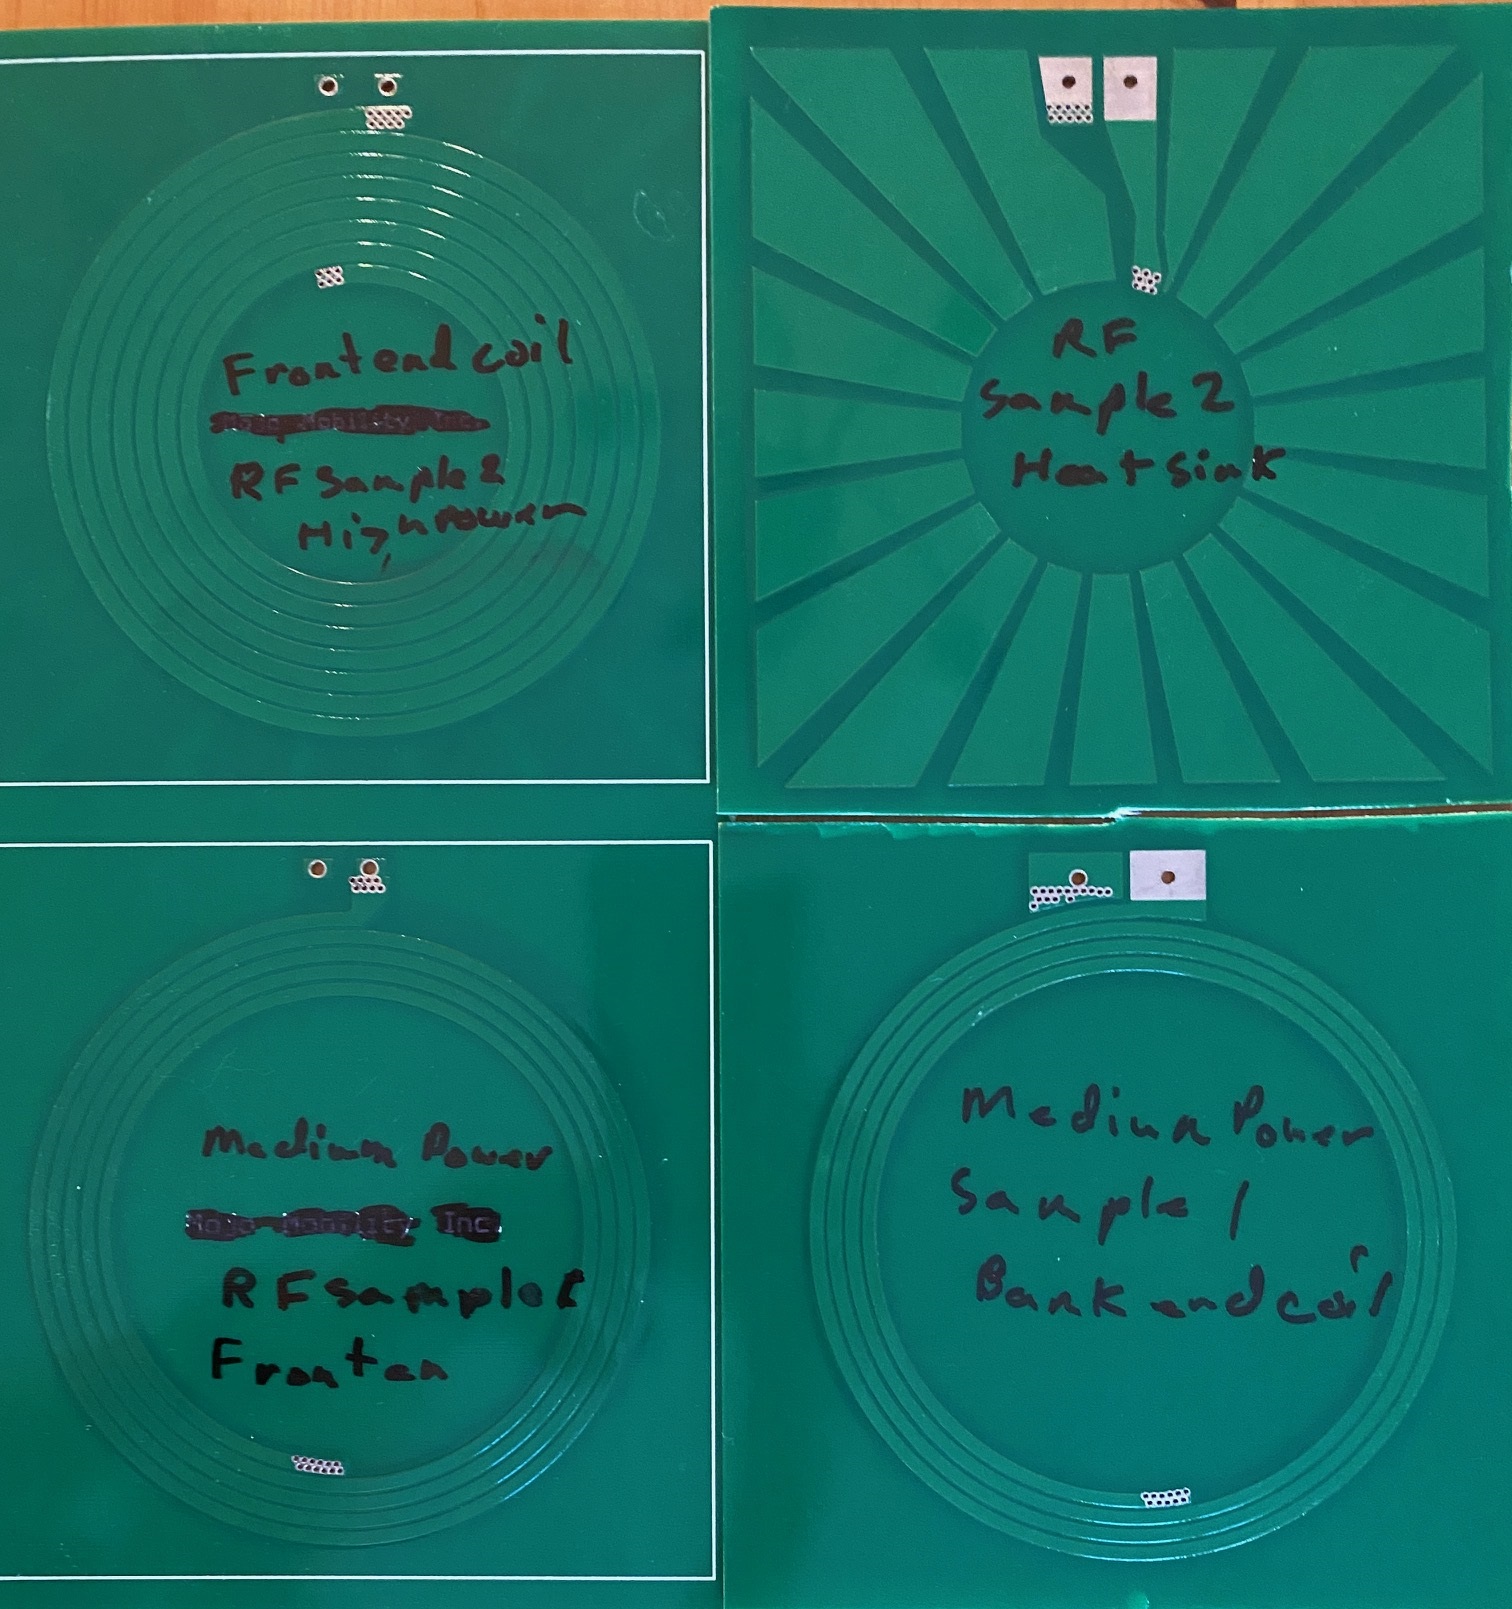 Frontend coil
Mojo Mobility Inc.
RF Sample 2
High Power
RF
Sample 2
Heat Sink
Medium Power
Mojo Mobility Inc
RF Sample
Fronten
Medium Power
Sample 1
Bank end coil